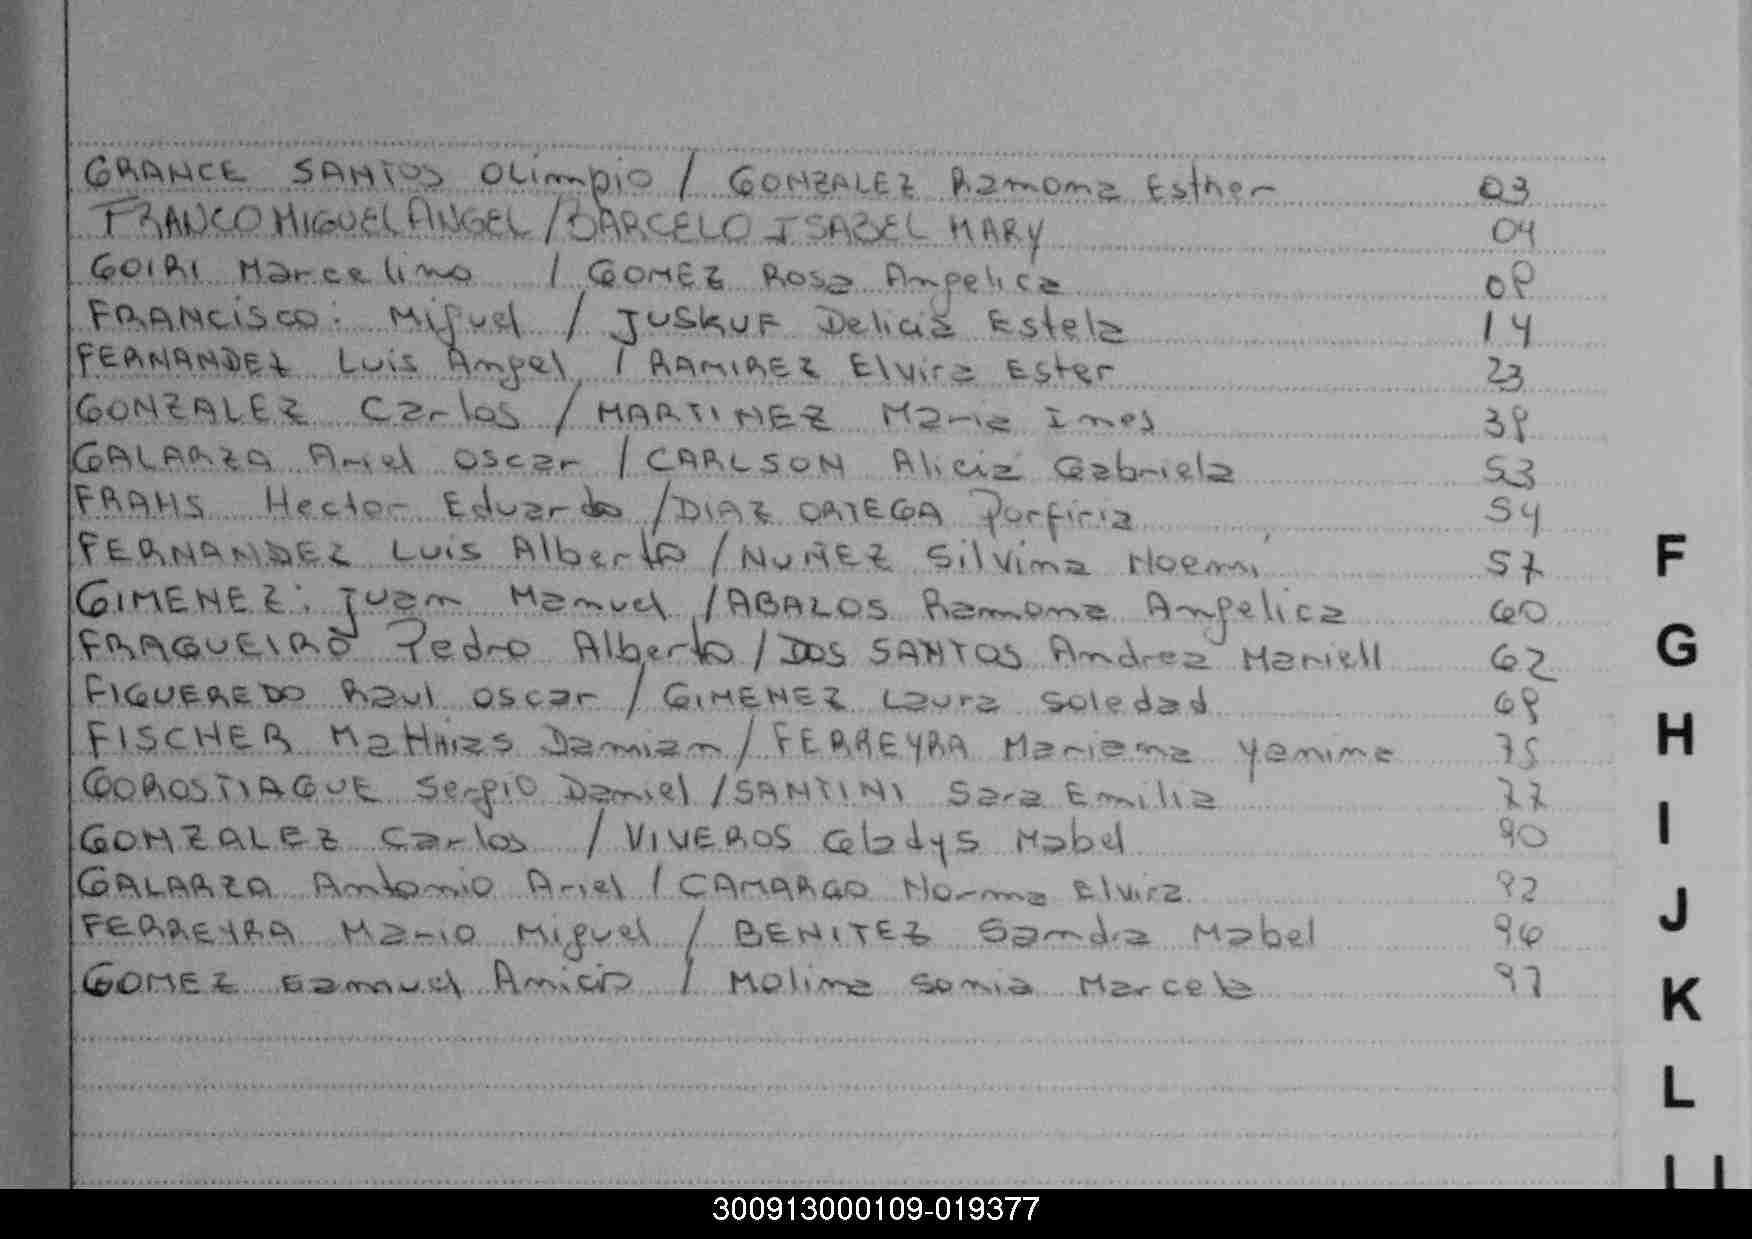 GRANCE SANTOS Olimpio / GONZALEZ Ramona Esther 03
FRANCO MIGUEL ANGEL / BARCELO ISABEL MARY 04
GOIRI Marcelino / GOMEZ Rosa Angelica 08
FRANCISCO: Miguel / JUSKUF Delicia Estela 14
FERNANDEZ Luis Angel / RAMIREZ Elvira Ester 23
GONZALEZ Carlos / MARTINEZ Maria Ines 38
GALARZA Ariel Oscar / CARLSON Alicia Gabriela 53
FRAHS Hector Eduardo / DIAZ ORTEGA Porfiria 54
FERNANDEZ Luis Alberto / NUÑEZ Silvina Noemi 57
GIMENEZ: Juan Manuel / ABALOS Ramona Angelica 60
FRAGUEIRO Pedro Alberto / DOS SANTOS Andrea Mariell 62
FIGUEREDO Raul Oscar / GIMENEZ Laura Soledad 68
FISCHER Mathias Damian / FERREYRA Mariana Yanina 75
GOROSTIAGUE Sergio Daniel / SANTINI Sara Emilia 77
GONZALEZ Carlos / VIVEROS Gladys Mabel 90
GALARZA Antonio Ariel / CAMARGO Norma Elvira 92
FERREYRA Mario Miguel / BENITEZ Sandra Mabel 96
GOMEZ / Molina Sonia Marcela 97
F
G
H
I
J
K
L
LL
300913000109-019377